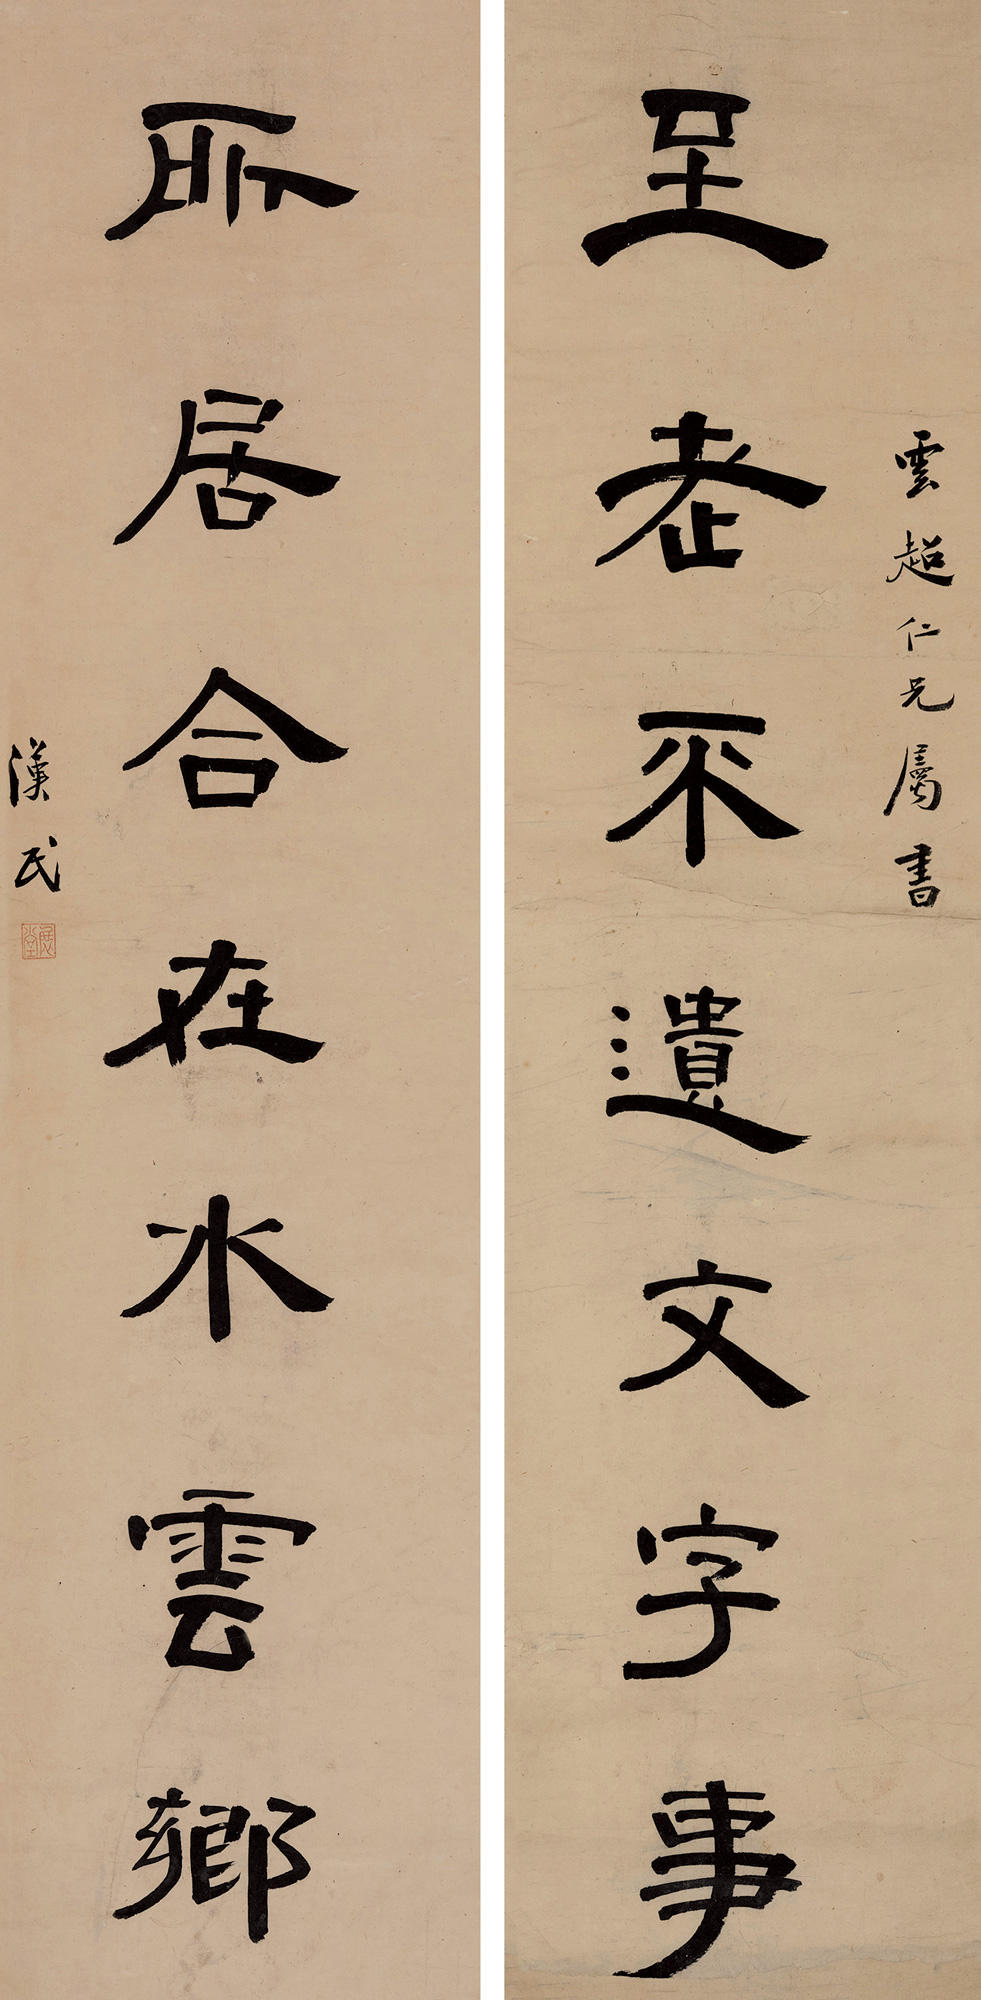 至老不遺文字事
雲超仁兄屬書
所居合在水雲鄉
漢民
展堂